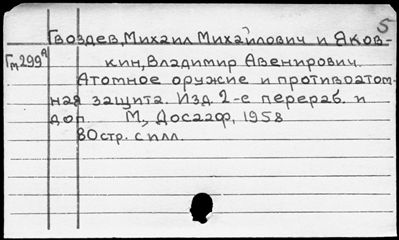 5
Гвоздев, Михаил Михайлович и Яков-
Гм299А
кин, Владимир Авенирович.
Атомное оружие и противоатом-
ная защита. Изд. 2-е перераб. и
доп. М., Досааф, 1958
80стр. с илл.